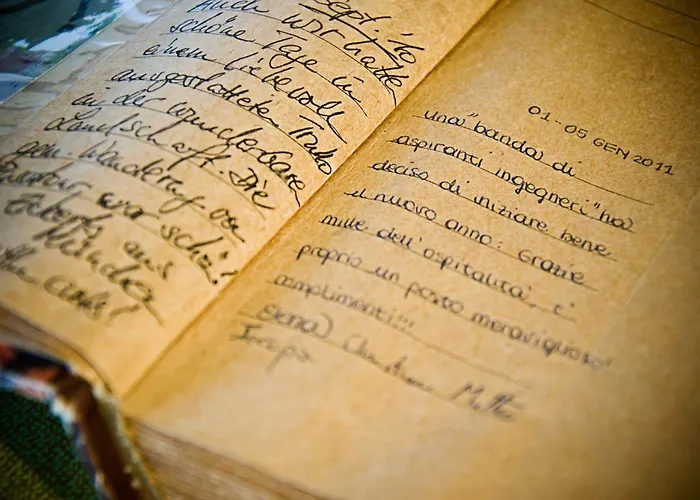 Sept. '10
Auch wir hatten
schöne Tage in
einem liebevoll
ausgestatteten Trullo
in der wunderbaren
Landschaft. Die
Wanderung von
war schön!
aus
01-05 GEN 2011
una "banda" di
aspiranti ingegneri "ha
deciso di iniziare bene
il nuovo anno: Grazie
mille dell'ospitalità, è
proprio un posto meraviglioso!
complimenti!!!